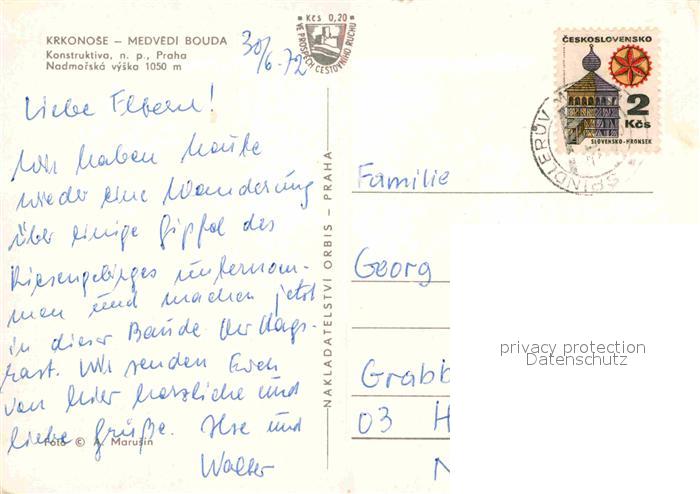 KRKONOŠE – MEDVĚDÍ BOUDA
Konstruktiva, n. p., Praha
Nadmořská výška 1050 m
Kčs 0,20
VE PROSPĚCH CESTOVNÍHO RUCHU
30/6. 72
Liebe Eltern!
Wir haben heute
wieder eine Wanderung
über einige Gipfel des
Riesengebirges unternom-
men und machen jetzt
in dieser Baude Mittags-
rast. Wir senden Euch
von hier herzliche und
liebe Grüße. Ilse und
Walter
Foto © A. Marušin
NAKLADATELSTVÍ ORBIS – PRAHA
ČESKOSLOVENSKO
2
Kčs
SLOVENSKO-HRONSEK
SPINDLERŮV M
Familie
Georg
Grabb
03 H
privacy protection
Datenschutz